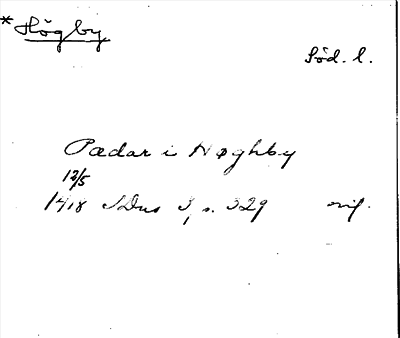 * Högby
Söd. l.
Pædar i Høghby
12/5
1418 SDns 3, s. 329 orig.